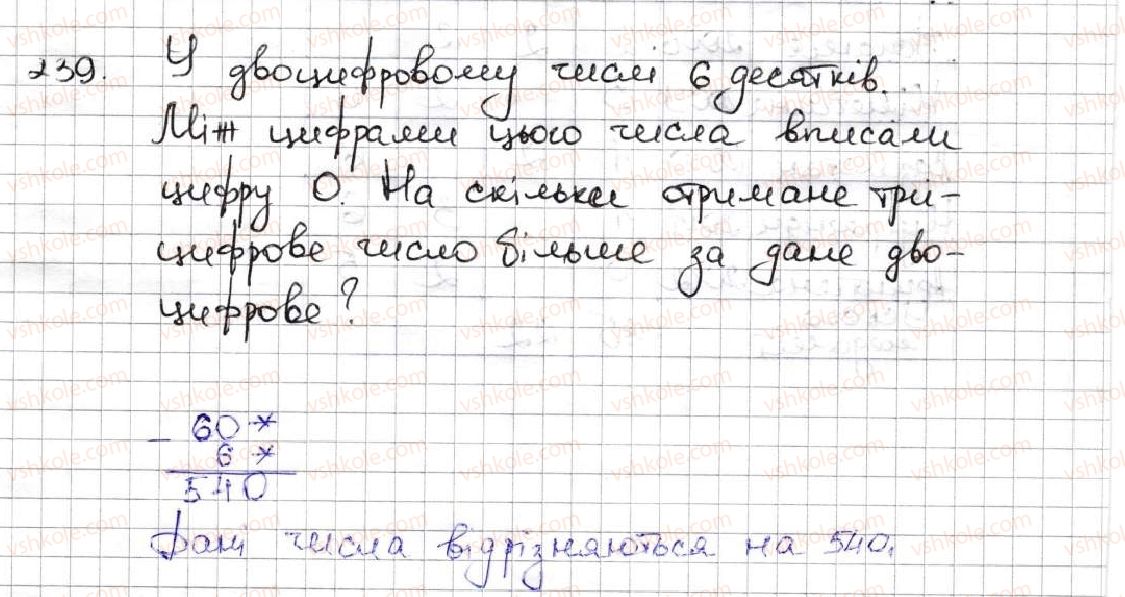 239. У двоцифровому числі 6 десятків.
Між цифрами цього числа вписали
цифру 0. На скільки отримане три-
цифрове число більше за дане дво-
цифрове?
− 60*
6*
540
Дані числа відрізняються на 540.